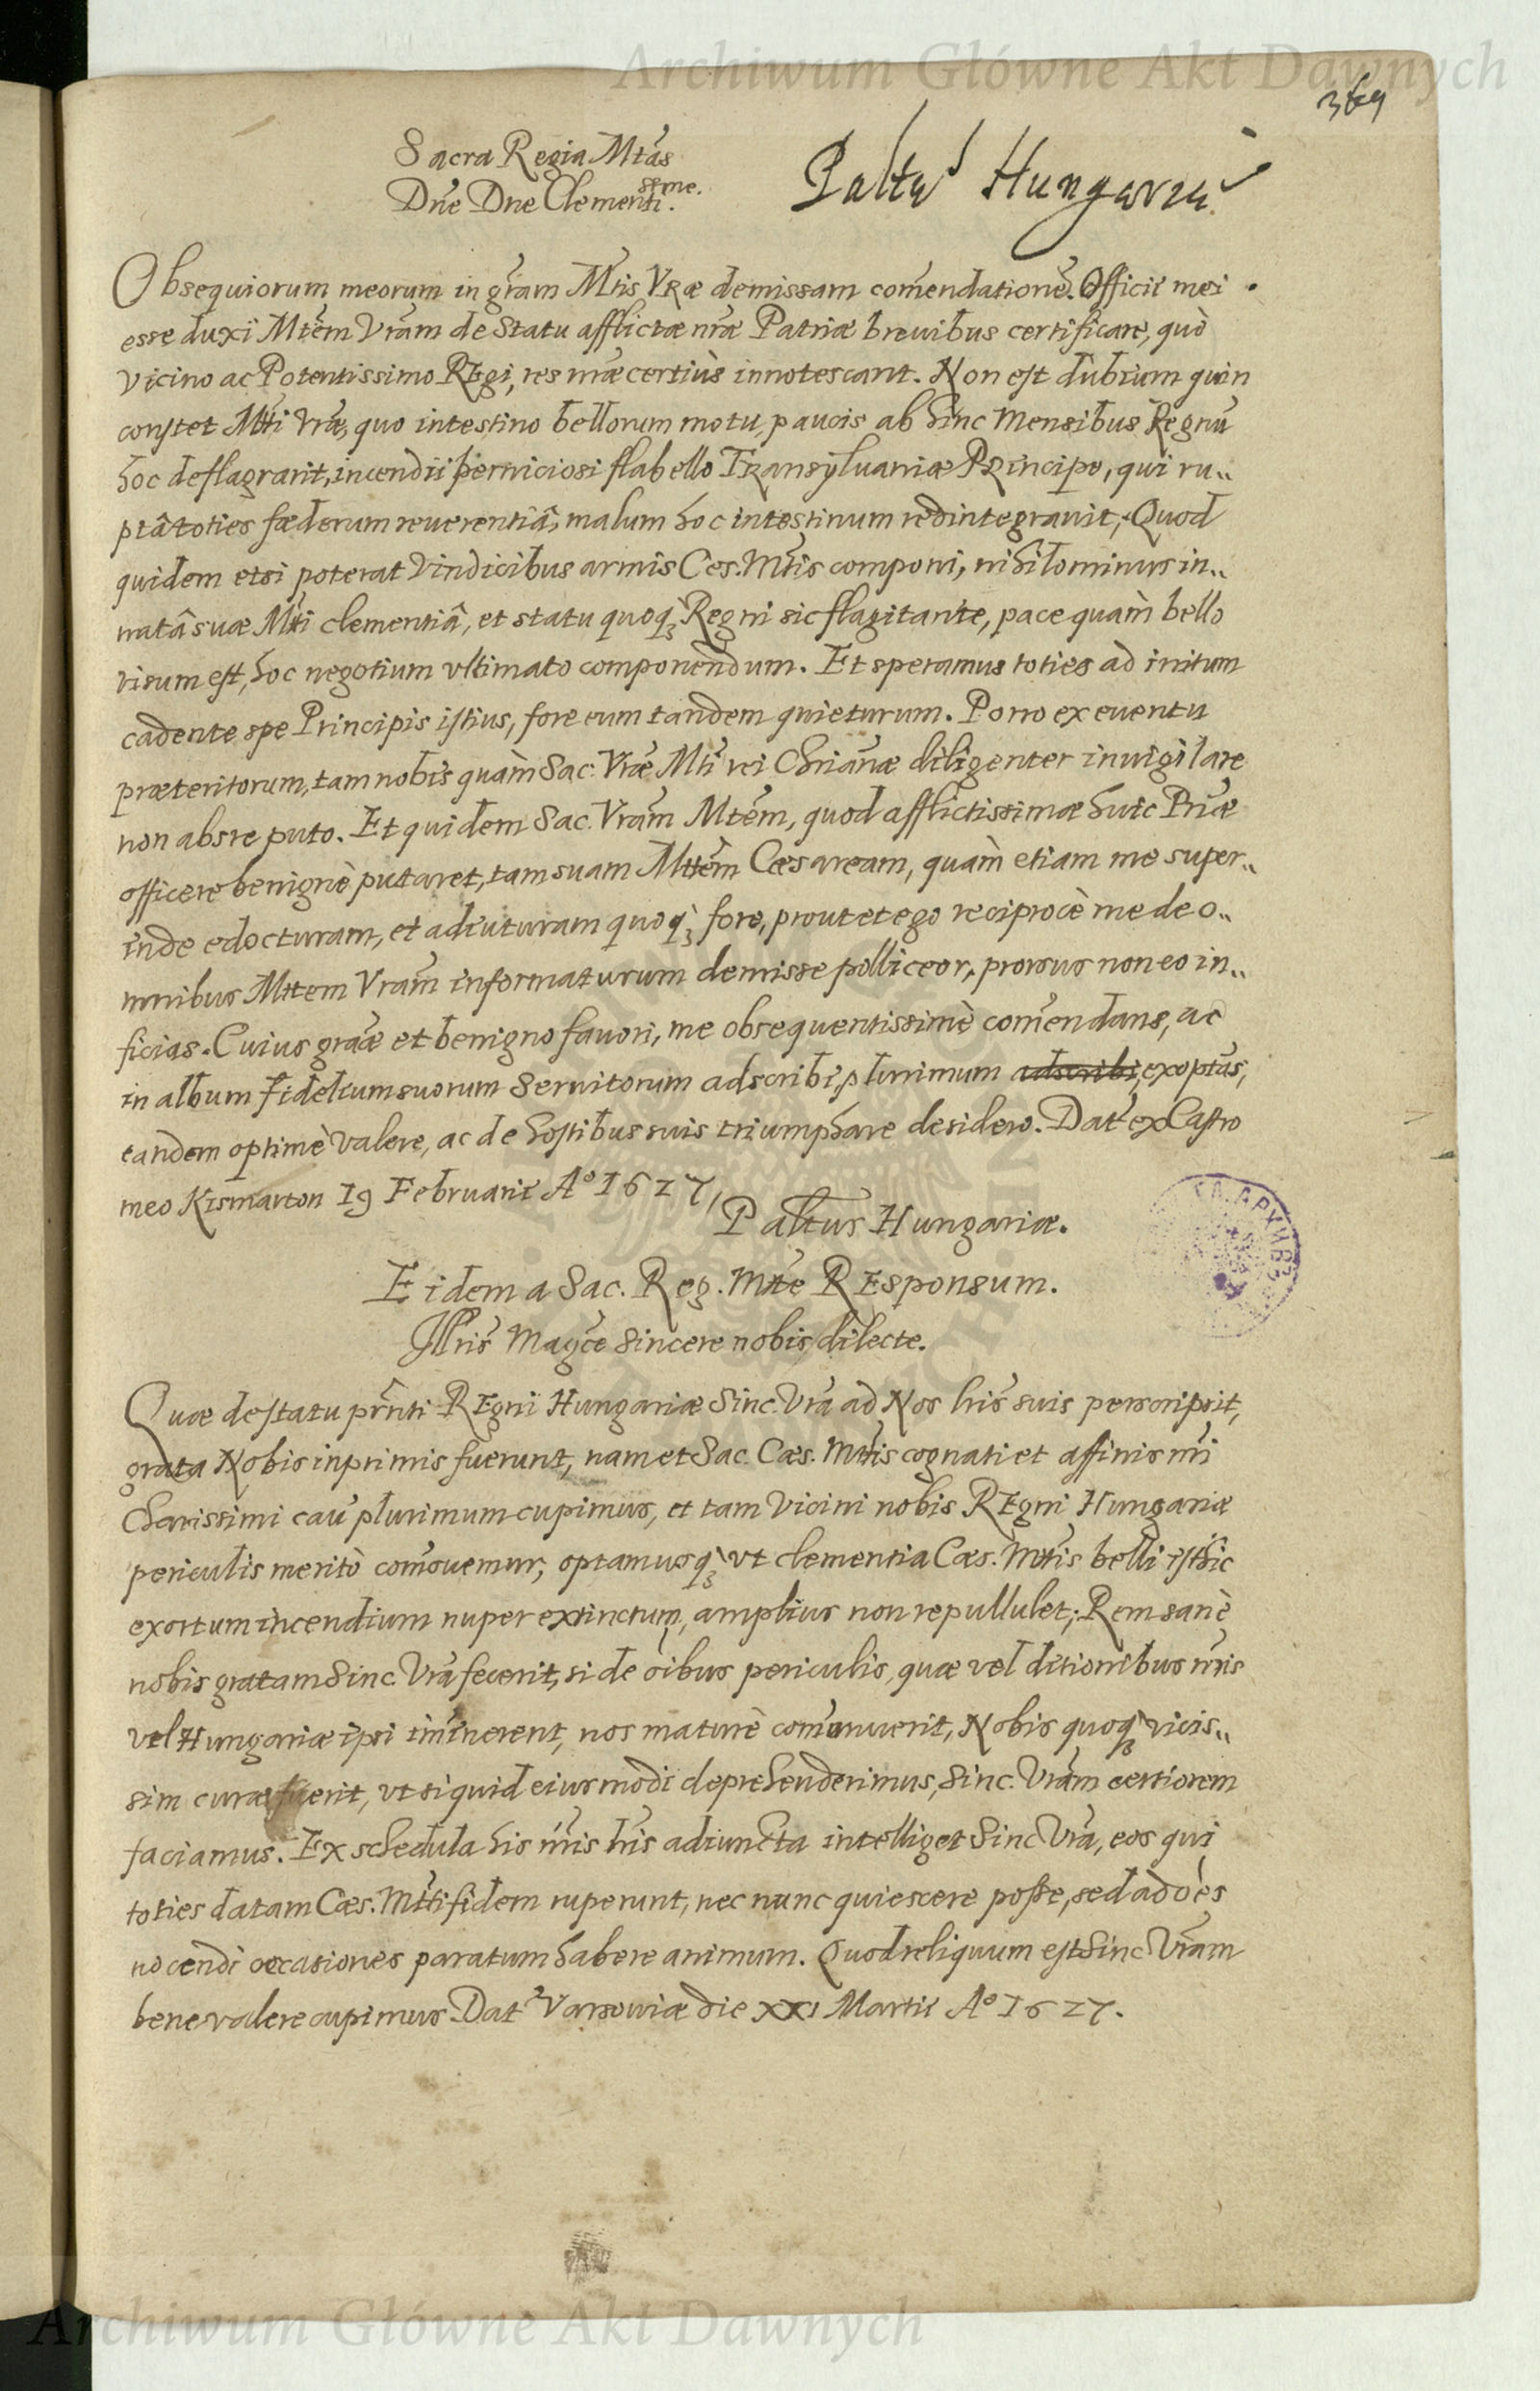 Archiwum Główne Akt Dawnych
369
Sacra Regia Mtãs
Dñe Dne Clementi.ssme.
Paltus Hungariæ
Obsequiorum meorum in grãm Mtis Vræ demissam com̃endationẽ. Officii mei
esse duxi Mtẽm Vrãm de Statu afflictæ nræ Patriæ breuibus certificare, quò
vicino ac Potentissimo REgi, res nræ certiùs innotescant. Non est dubium quin
constet Mtti Vræ, quo intestino bellorum motu, paucis ab hinc Mensibus Regnũ
hoc deflagrarit, incendii perniciosi flabello Transyluaniæ Principe, qui ru„
ptâ toties fæderum reuerentiâ, malum hoc intestinum redintegrauit, Quod
quidem etsi poterat Vindicibus armis Ces. Mtis componi, nihilominus in„
natâ suæ Mtti clementiâ, et statu quoq₃ Regni sic flagitante, pace quàm bello
visum est, hoc negotium vltimato componendum. Et speramus toties ad initum
cadente spe Principis istius, fore eum tandem quieturum. Porro ex euentu
præteritorum, tam nobis quàm Sac. Vræ Mti rei Chrianæ diligenter inuigilare
non absre puto. Et quidem Sac. Vrãm Mtẽm, quod afflictissimæ huic Priæ
officere benignè putaret, tam suam Mttẽm Cæsaream, quàm etiam me super„
inde edocturam, et adiuturam quoq₃ fore, prout et ego reciprocè me de o„
mnibus Mttem Vrãm informaturum demisse polliceor, prorsus non eo in„
ficias. Cuius grãæ et benigno fauori, me obsequentissimè com̃endans, ac
in album fidelium suorum Seruitorum adscribi, plurimum adscribi, exoptãs,
tandem optimè valere, ac de hostibus suis triumphare desidero. Dat̃ ex Castro
meo Kismarton 19 Februarii Aº 1627,
Paltus Hungariæ.
Eidem a Sac. Reg. Mtte REsponsum.
Illris Magce Sincere nobis dilecte.
Quæ de statu prñti REgni Hungariæ Sinc. Vrã ad Nos lris suis perscripsit,
grata Nobis inprimis fuerunt, nam et Sac. Cæs. Mttis cognati et affinis nri
charissimi cau plurimum cupimus, et tam Vicini nobis REgni Hungariæ
periculis meritò com̃ouemur, optamusq₃ vt clementia Cæs. Mttis belli isthic
exortum incendium nuper extinctum, amplius non repullulet; Rem sanè
nobis gratam Sinc. Vrã fecerit, si de õibus periculis, quæ vel ditionibus nris
vel Hungariæ ipsi im̃inerent, nos maturè com̃onuerit, Nobis quoq₃ vicis„
sim curæ fuerit, vt si quid eiusmodi deprehenderimus, Sinc. Vrãm certiorem
faciamus. Ex schedula his nris lris adiuncta intelliget Sinc Vrã, eos qui
toties datam Cæs. Mtti fidem ruperunt, nec nunc quiescere posse, sed ad oẽs
nocendi occasiones paratum habere animum. Quod reliquum est Sinc Vrãm
bene valere cupimus. Dat̃ Varsouiæ die XXI Martii Aº 1627.
Archiwum Główne Akt Dawnych